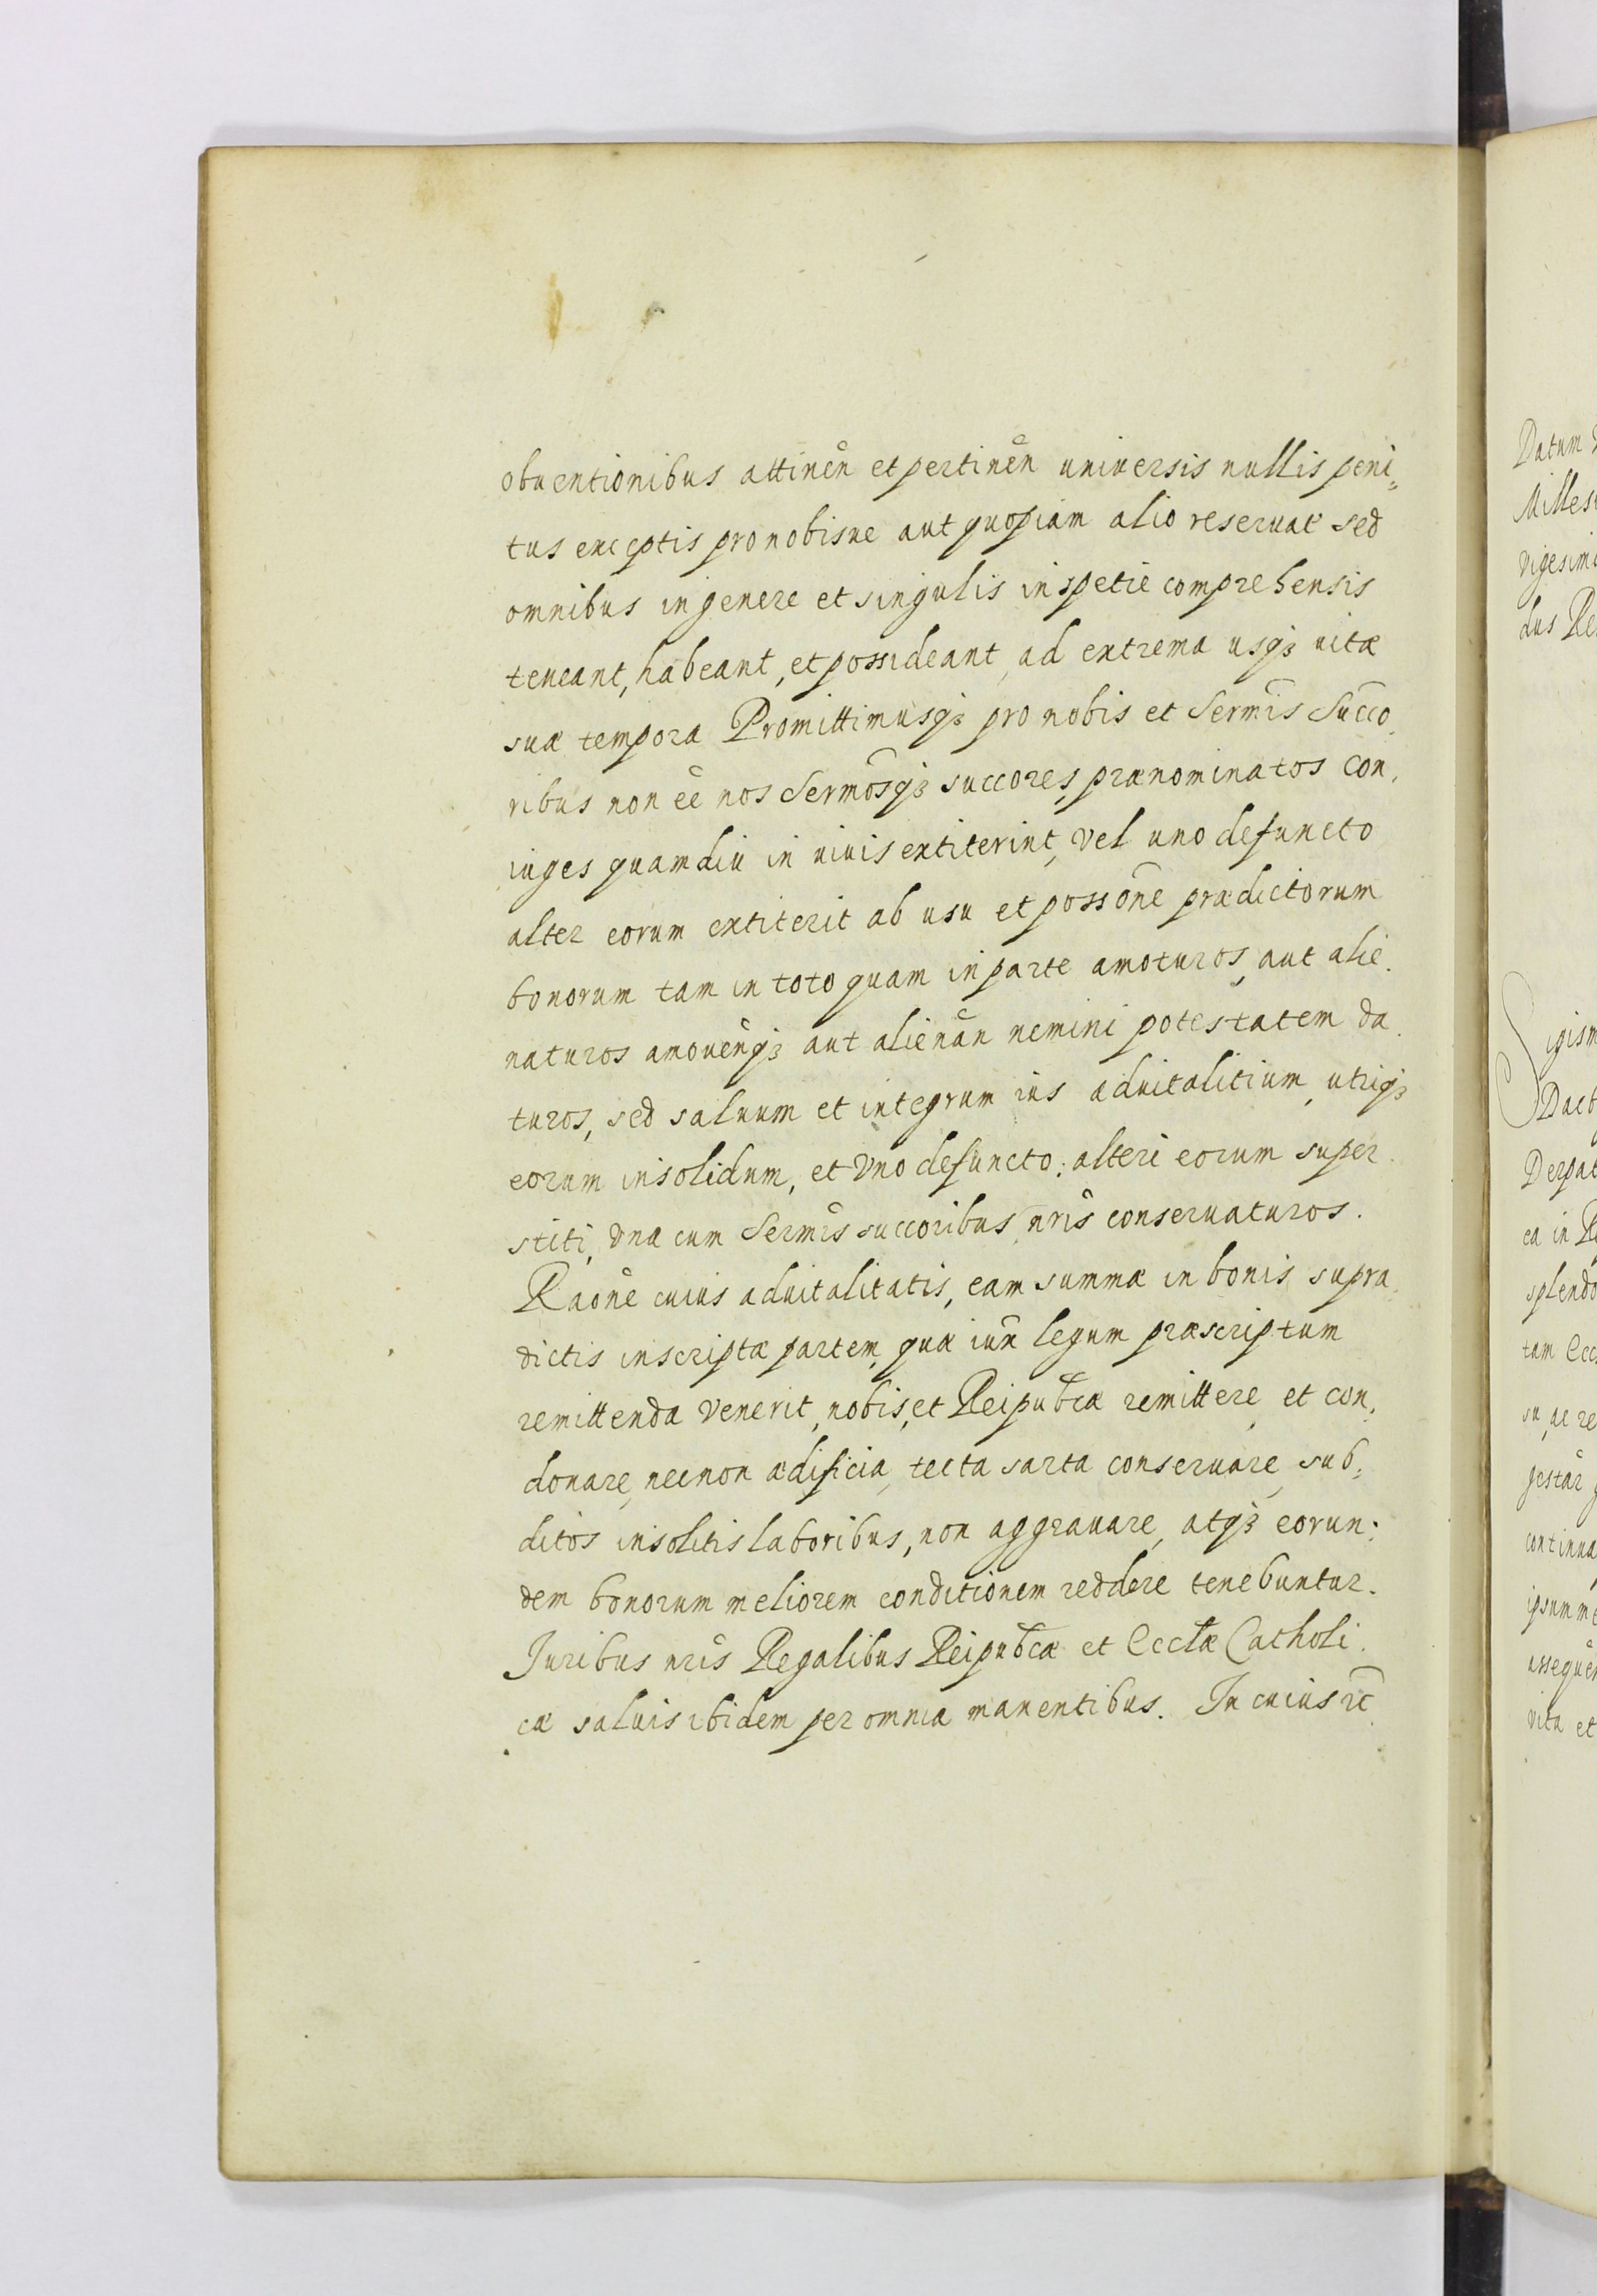 obuentionibus attinen̄ et pertinen̄ uniuersis nullis peni„
tus exceptis pro nobisue aut quopiam alio reseruat̄ sed
omnibus in genere et singulis in spetie comprehensis
teneant, habeant, et possideant, ad extrema usqꝫ uitæ
suæ tempora Promittimusqꝫ pro nobis et Serm̄is Succo,
ribus non ēe nos Serm̄osqꝫ succores, prænominatos con,
iuges quamdiu in uiuis extiterint, vel uno defuncto
alter eorum extiterit ab usu et possōne prædictorum
bonorum tam in toto quam in parte amoturos, aut alie.
naturos amouen̄qꝫ aut alienan̄ nemini potestatem da.
turos, sed saluum et integrum ius aduitalitium, utriqꝫ
eorum insolidum, et vno defuncto: alteri eorum super.
stiti, vna cum Serm̄is succoribus n̄ris conseruaturos.
Raōne cuius aduitalitatis, eam summæ in bonis supra,
dictis inscriptæ partem, quæ iux̄ legum præscriptum
remittenda venerit, nobis, et Reipub̄cæ remittere, et con,
donare, necnon ædificia, tecta sarta conseruare, sub,
ditos insolitis laboribus, non aggrauare, atqꝫ eorun:
dem bonorum meliorem conditionem reddere tenebuntur.
Iuribus nr̄is Regalibus Reipub̄cæ et Eccl̄æ Catholi.
cæ saluis ibidem per omnia manentibus. In cuius rē
Datum
Milles
vigesim
dus Re
Sigism
Dact
Derpat
ea in
splendo
tam Ecc
su, ac re
gestar̄
continua
ipsum
assequen
vita et